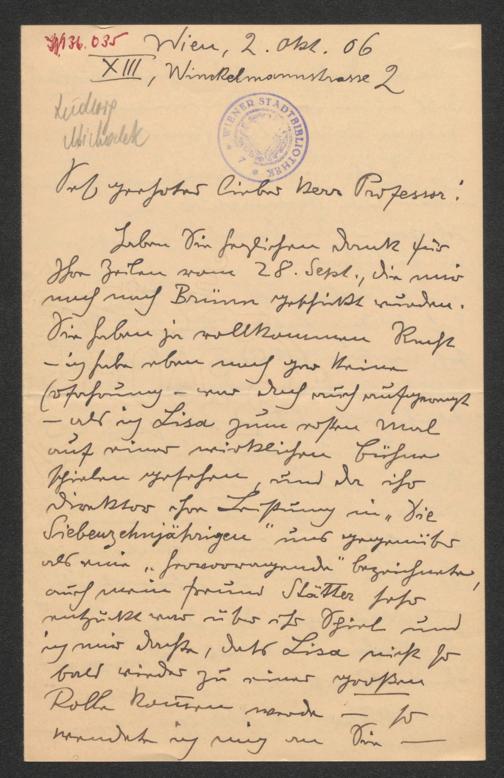 H.I.N.136.035
Wien, 2. Okt. 06
XIII, Winckelmannstrasse 2
Ludwig
Michalek
WIENER STADTBIBLIOTHEK
Sehr geehrter lieber Herr Professor!
Haben Sie herzlichen Dank für
Ihre Zeilen vom 28. Sept., die mir
noch nach Brünn geschickt wurden.
Sie haben ja vollkommen Recht
– ich habe eben noch gar keine
Erfahrung – war doch auch aufgeregt
– als ich Lisa zum ersten Mal
auf einer wirklichen Bühne
spielen gesehen, und da ihr
Direktor ihre Leistung in „Die
Siebenzehnjährigen" uns gegenüber
als eine „hervorragende" bezeichnete,
auch mein Freund Stätter sehr
entzückt war über ihr Spiel und
ich mir dachte, dass Lisa nicht so
bald wieder zu einer großen
Rolle kommen werde – so
wendete ich mich an Sie –